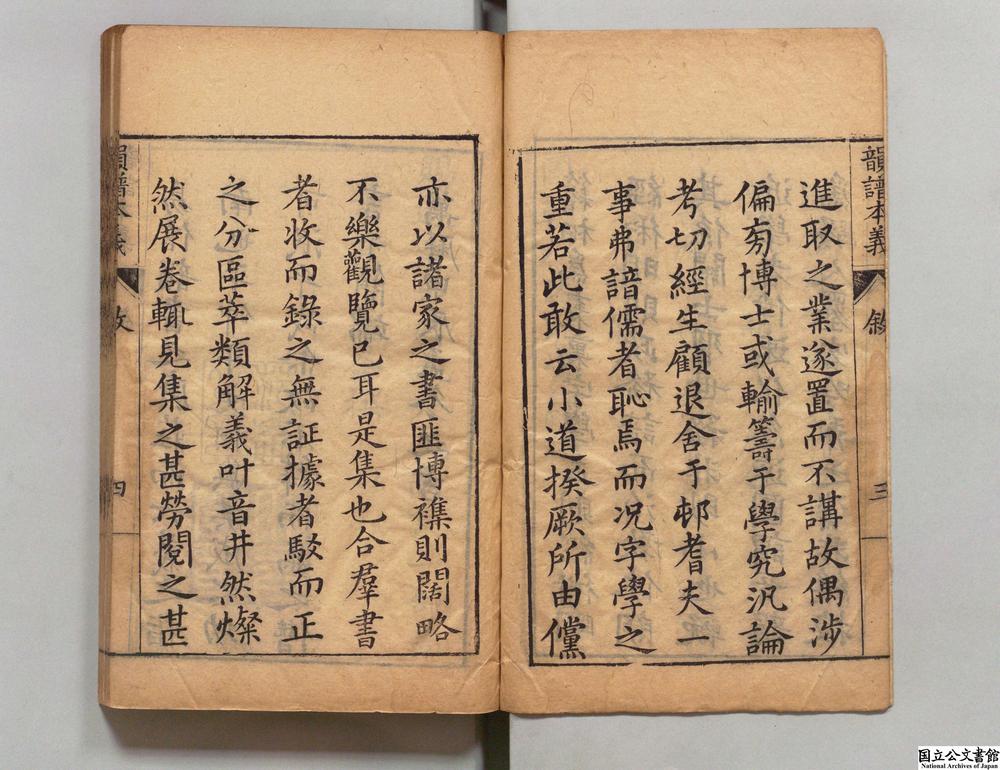 韻譜本義
敘
三
進取之業遂置而不講故偶涉
偏旁博士或輸籌于學究汎論
考切經生顧退舍于邨耆夫一
事弗諳儒者恥焉而况字學之
重若此敢云小道揆厥所由儻
亦以諸家之書匪博襍則闊略
不樂觀覽已耳是集也合羣書
者收而錄之無証據者駁而正
之分區萃類解義叶音井然燦
然展卷輒見集之甚勞閱之甚
韻譜本義
四
国立公文書館
National Archives of Japan